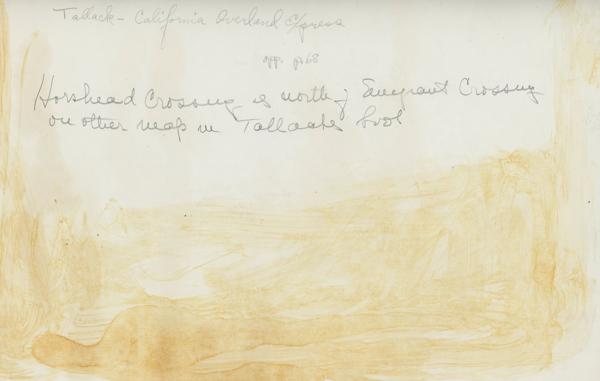 Tallack - California Overland Express
opp. p. 68
Horshead Crossing is north of Emigrant Crossing
on other map in Tallacks book